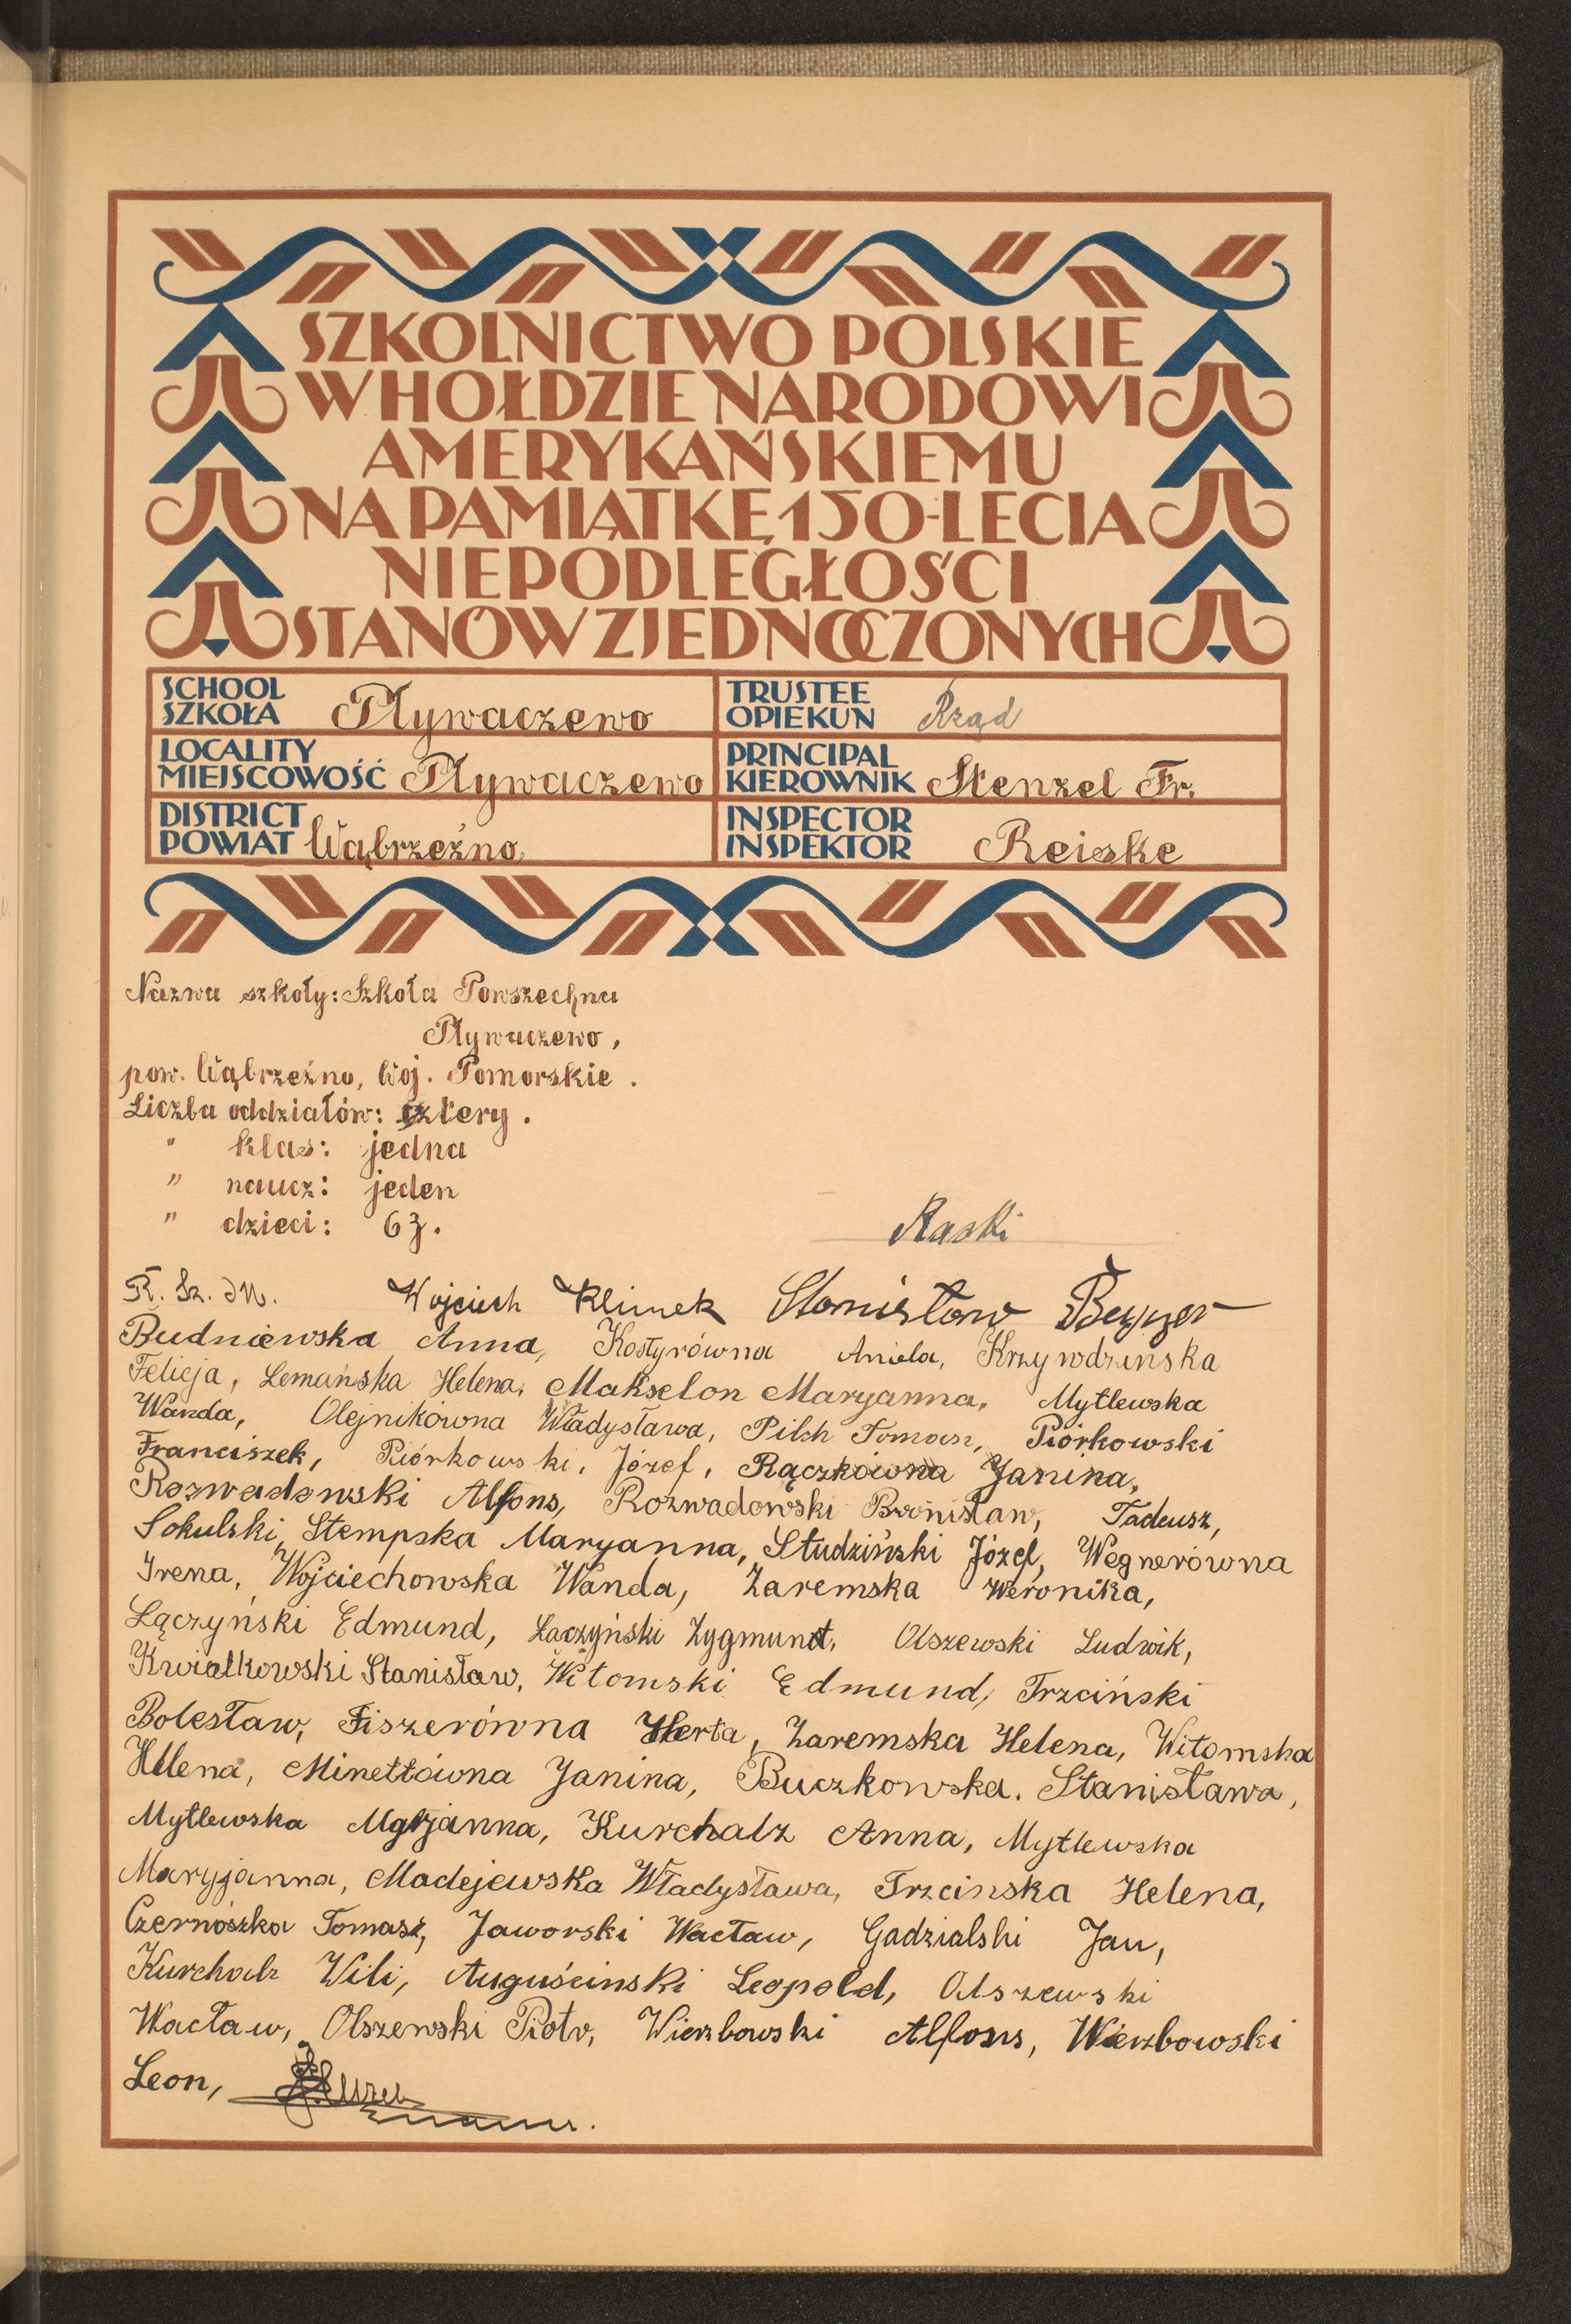 SZKOLNICTWO POLSKIE
W HOŁDZIE NARODOWI
AMERYKAŃSKIEMU
NA PAMIĄTKĘ 150-LECIA
NIEPODLEGŁOŚCI
STANÓW ZJEDNOCZONYCH
SCHOOL
SZKOŁA Pływaczewo
TRUSTEE
OPIEKUN Rząd
LOCALITY
MIEJSCOWOŚĆ Pływaczewo
PRINCIPAL
KIEROWNIK Stenzel Fr.
DISTRICT
POWIAT Wąbrzeźno
INSPECTOR
INSPEKTOR Reiske
Nazwa szkoły: Szkoła Powszechna
Pływaczewo,
pow. Wąbrzeźno, Woj. Pomorskie.
Liczba oddziałów: cztery.
" klas: jedna
" naucz: jeden
" dzieci: 63.
Raski
R. Sz. M. Wojciech Klimek Stanisław
Budniewska Anna, Kostyrówna Aniela, Krzywdzinska
Felicja, Lemańska Helena, Makselon Maryanna, Mytlewska
Wanda, Olejnikówna Władysława, Pilch Tomasz, Piórkowski
Franciszek, Piórkowski, Józef, Rączkówna Janina,
Rozwadowski Alfons, Rozwadowski Bronisław, Tadeusz,
Sokulski, Stempska Maryanna, Studziński Józef, Wegnerówna
Irena, Wojciechowska Wanda, Zaremska Weronika,
Łączyński Edmund, Łaczyński Zygmunt, Olszewski Ludwik,
Kwiatkowski Stanisław, Witomski Edmund, Trzciński
Bolesław, Fiszerówna Herta, Zaremska Helena, Witomska
Helena, Minettówna Janina, Buczkowska. Stanisława,
Mytlewska Maryjanna, Kurchalz Anna, Mytlewska
Maryjanna, Madejewska Władysława, Trzcinska Helena,
Czernoszka Tomasz, Jaworski Wacław, Gadzialski Jan,
Kurchalz Wili, Auguścinski Leopold, Olszewski
Wacław, Olszewski Piotr, Wierzbowski Alfons, Wierzbowski
Leon,